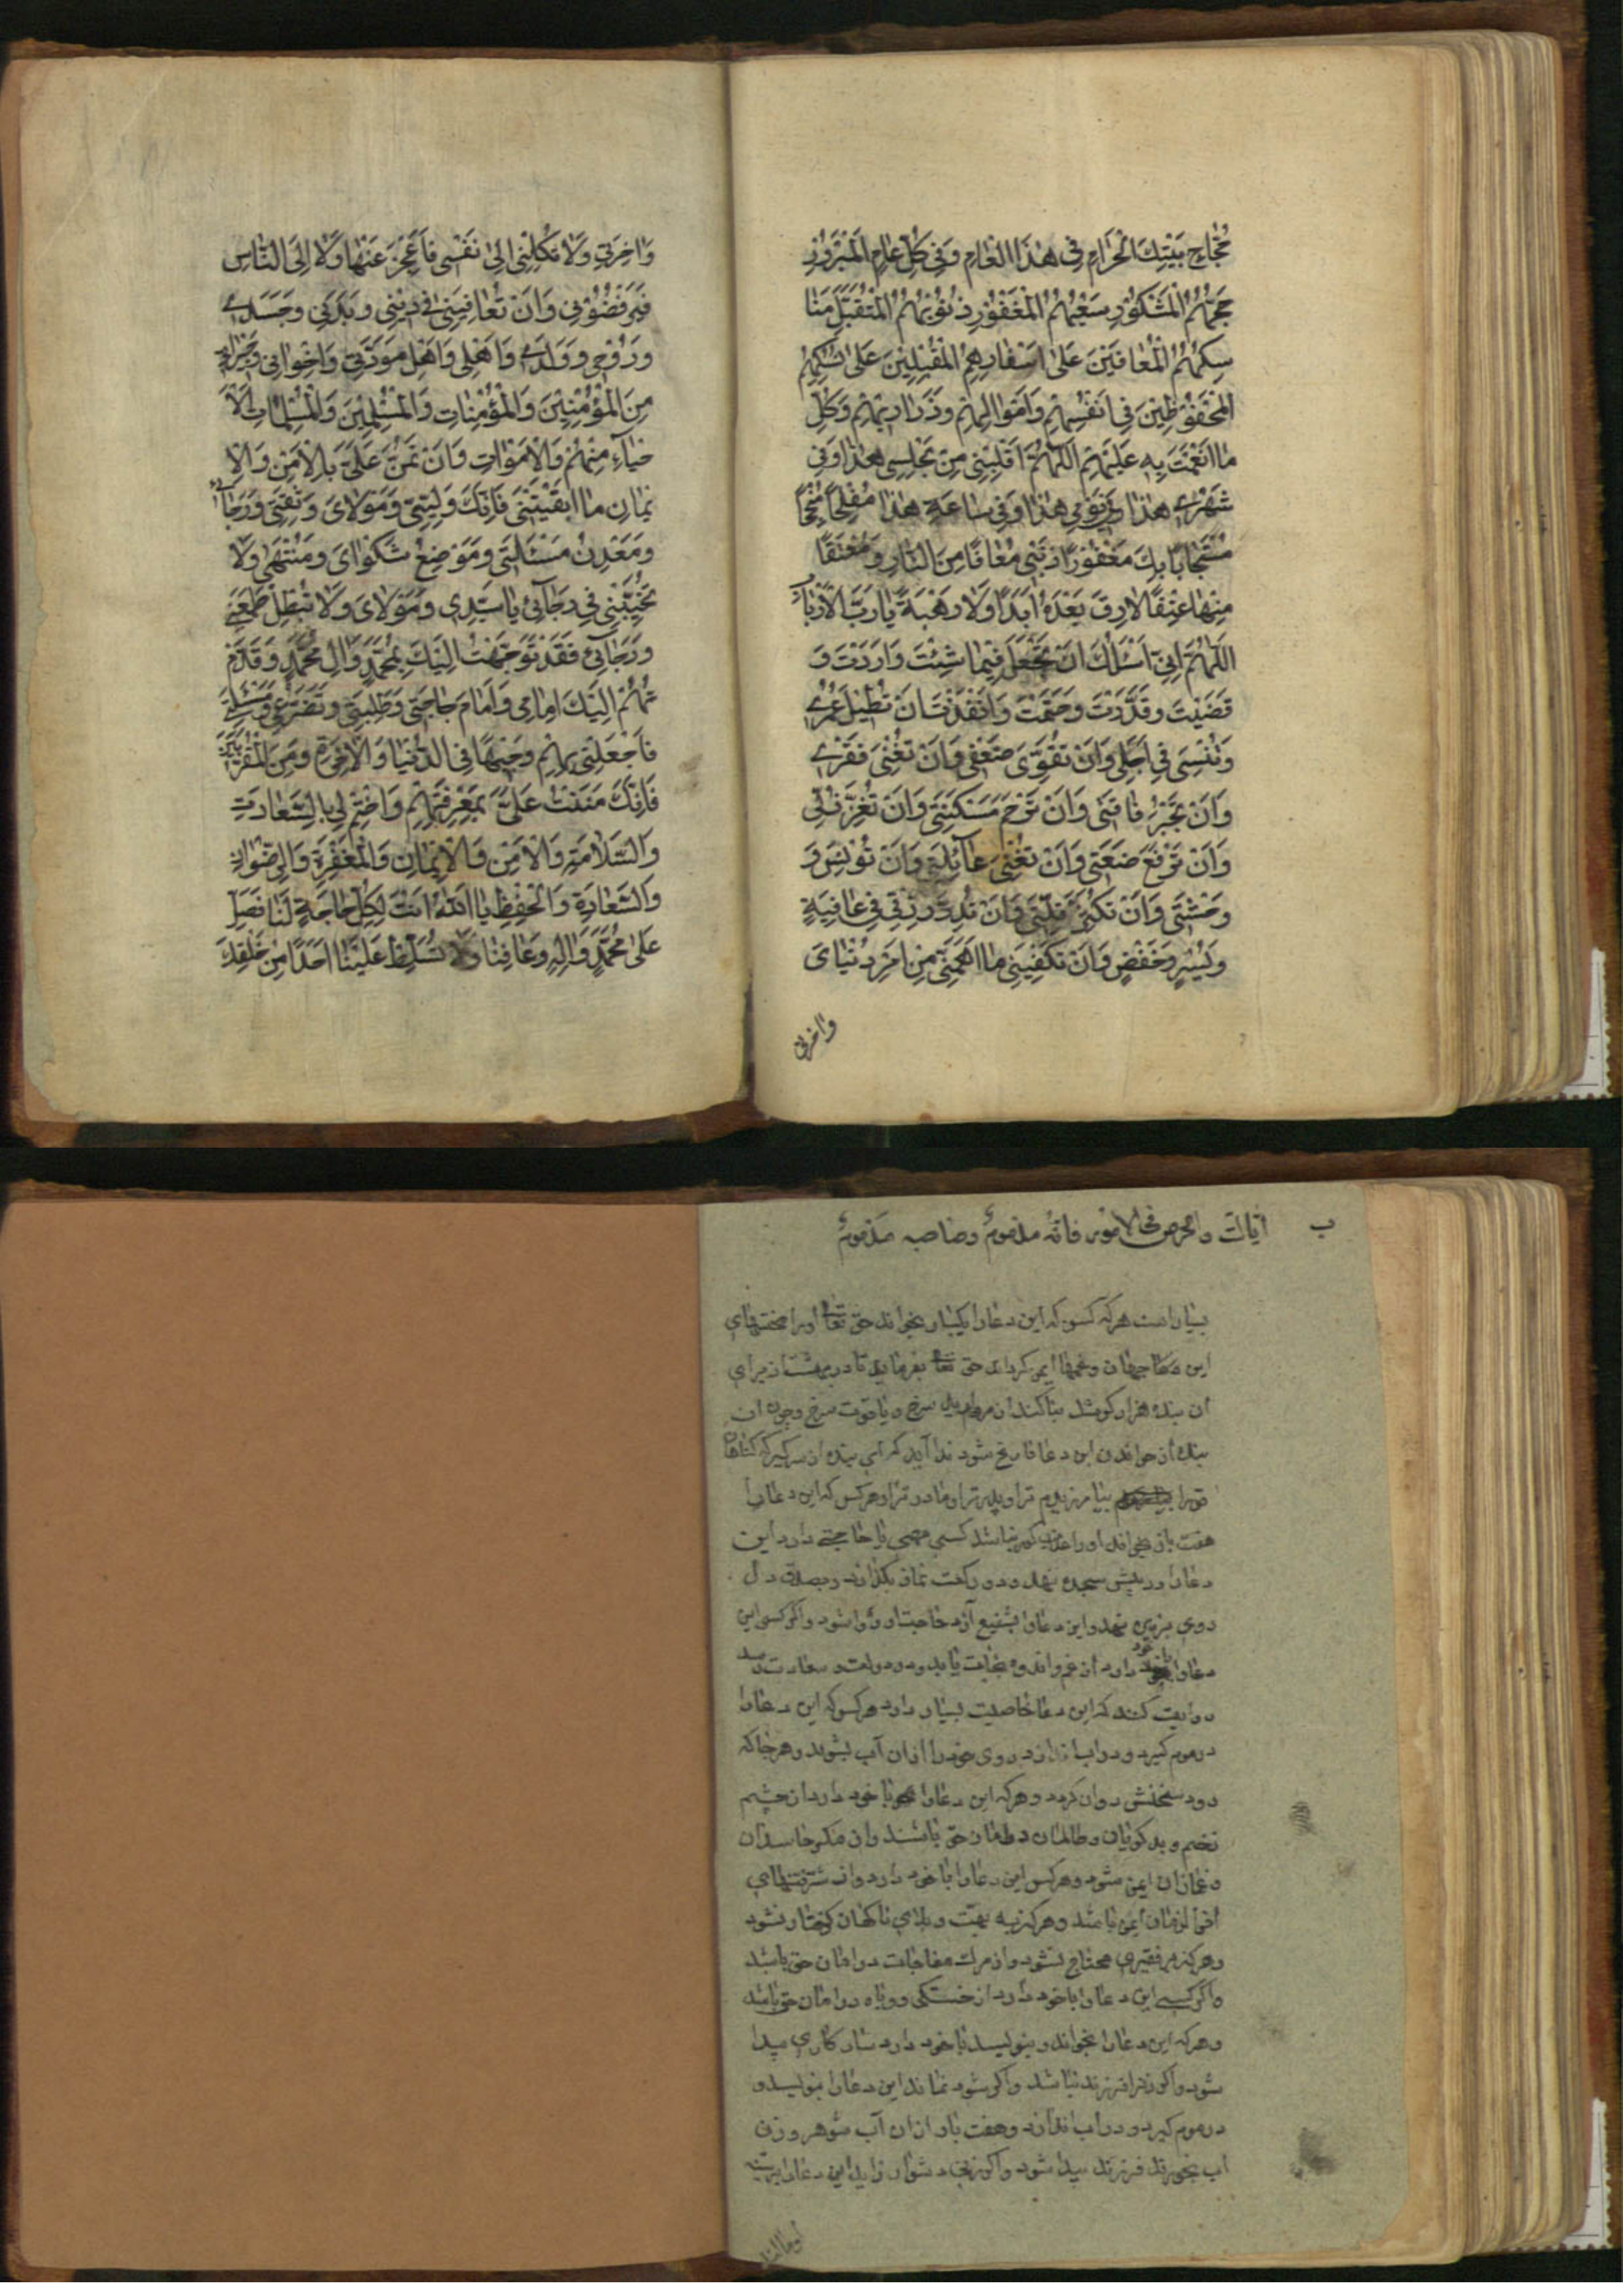 حُجَّاجِ بَيْتِكَ الْحَرَامِ فِي هٰذَا الْعَامِ وَفِي كُلِّ عَامٍ الْمَبْرُورِ
حَجُّهُمُ الْمَشْكُورِ سَعْيُهُمُ الْمَغْفُورِ ذُنُوبُهُمُ الْمُتَقَبَّلِ مَنَا
سِكُهُمُ الْمُعَافَيْنَ عَلَىٰ اَسْفَارِهِمُ الْمُقْبِلِينَ عَلَىٰ نُسُكِهِمُ
الْمَحْفُوظِينَ فِي اَنْفُسِهِمْ وَاَمْوَالِهِمْ وَذَرَارِيهِمْ وَكُلِّ
مَا اَنْعَمْتَ بِهِ عَلَيْهِمْ اَللّٰهُمَّ اَقْلِبْنِي مِنْ مَجْلِسِي هٰذَا وَفِي
شَهْرِي هٰذَا وَفِي يَوْمِي هٰذَا وَفِي سَاعَتِي هٰذِهِ مُفْلِحًا مُنْجِحًا
مُسْتَجَابًا بِكَ مَغْفُورًا ذَنْبِي مُعَافًا مِنَ النَّارِ وَمُعْتَقًا
مِنْهَا عِتْقًا لَا رِقَّ بَعْدَهُ اَبَدًا وَلَا رَهْبَةً يَا رَبَّ الْاَرْبَابِ
اَللّٰهُمَّ اِنِّي اَسْئَلُكَ اَنْ تَجْعَلَ فِيمَا شِئْتَ وَاَرَدْتَ وَ
قَضَيْتَ وَقَدَّرْتَ وَحَتَمْتَ وَاَنْفَذْتَ اَنْ تُطِيلَ عُمْرِي
وَتُنْسِئَ فِي اَجَلِي وَاَنْ تُقَوِّيَ ضَعْفِي وَاَنْ تُغْنِيَ فَقْرِي
وَاَنْ تَجْبُرَ فَاقَتِي وَاَنْ تَرْحَمَ مَسْكَنَتِي وَاَنْ تُعِزَّ ذُلِّي
وَاَنْ تَرْفَعَ ضَعَتِي وَاَنْ تُغْنِيَ عَائِلَتِي وَاَنْ تُونِسَ وَ
وَحْشَتِي وَاَنْ تُكْثِرَ قِلَّتِي وَاَنْ تُدِرَّ رِزْقِي فِي عَافِيَةٍ
وَيُسْرٍ وَخَفْضٍ وَاَنْ تَكْفِيَنِي مَا اَهَمَّنِي مِنْ اَمْرِ دُنْيَايَ
وَاخرتي
وَاٰخِرَتِي وَلَا تَكِلْنِي اِلَىٰ نَفْسِي فَاَعْجِزَ عَنْهَا وَلَا اِلَى النَّاسِ
فَيَرْفُضُونِي وَاَنْ تُعَافِيَنِي فِي دِينِي وَبَدَنِي وَجَسَدِي
وَرُوحِي وَوَلَدِي وَاَهْلِي وَاَهْلِ مَوَدَّتِي وَاِخْوَانِي وَجِيرَانِي
مِنَ الْمُؤْمِنِينَ وَالْمُؤْمِنَاتِ وَالْمُسْلِمِينَ وَالْمُسْلِمَاتِ الْاَ
حْيَاءِ مِنْهُمْ وَالْاَمْوَاتِ وَاَنْ تَمُنَّ عَلَيَّ بِالْاَمْنِ وَالْاِ
يمَانِ مَا اَبْقَيْتَنِي فَاِنَّكَ وَلِيِّي وَمَوْلَايَ وَثِقَتِي وَرَجَائِي
وَمَعْدِنُ مَسْئَلَتِي وَمَوْضِعُ شَكْوَايَ وَمُنْتَهَىٰ وَلَا
تُخَيِّبْنِي فِي رَجَائِي يَا سَيِّدِي وَمَوْلَايَ وَلَا تُبْطِلْ طَمَعِي
وَرَجَائِي فَقَدْ تَوَجَّهْتُ اِلَيْكَ بِمُحَمَّدٍ وَاٰلِ مُحَمَّدٍ وَقَدَّمْ
تُهُمْ اِلَيْكَ اِمَامِي وَاَمَامَ حَاجَتِي وَطَلِبَتِي وَتَضَرُّعِي وَمَسْئَلَتِي
فَاجْعَلْنِي بِهِمْ وَجِيهًا فِي الدُّنْيَا وَالْاٰخِرَةِ وَمِنَ الْمُقَرَّبِينَ
فَاِنَّكَ مَنَنْتَ عَلَيَّ بِمَعْرِفَتِهِمْ وَاخْتِمْ لِي بِالسَّعَادَةِ
وَالسَّلَامَةِ وَالْاَمْنِ وَالْاِيمَانِ وَالْمَغْفِرَةِ وَالرِّضْوَانِ
وَالسَّعَادَةِ وَالْحِفْظِ يَا اَللّٰهُ اَنْتَ لِكُلِّ حَاجَةٍ لَنَا فَصَلِّ
عَلَىٰ مُحَمَّدٍ وَاٰلِهِ وَعَافِنَا وَلَا تُسَلِّطْ عَلَيْنَا اَحَدًا مِنْ خَلْقِكَ
ب اياك والحرص فى الامور فانه مذموم وصاحبه مذموم
بسيار است هركه كسى كه اين دعا را يكبار بخواند حق تعالى او را محنتهاى
اين جهان وغمها ايمن گرداند حق تعالى بفرمايد تا در بهشت از براى
ان بنده هزار كوشك بنا كنند از مرواريد سرخ و ياقوت سرخ و چون ان
بنده از خواندن اين دعا فارغ شود ندا آيد كه اى بنده از سر گير كه گناهان
تورا بيامرزيدم ترا و پدر ترا و مادر ترا و هر كس كه اين دعا را
هفت بار بخواند او را عذاب گور نباشد كسى مهمى يا حاجتى دارد اين
دعا را در پيش سجده نهد و دو ركعت نماز بگذارد و بصدق دل
روى بزمين نهد و اين دعا را شفيع آرد حاجت او روا شود و اگر كسى اين
دعا را با خود دارد از غم و اندوه نجات يابد و در دولت و سعادت رسد
روايت كنند كه اين دعا خاصيت بسيار دارد هر كس كه اين دعا را
در موم گيرد و در اب اندازد روى خود را از ان آب بشويد و هر جا كه
رود سخنش روان گردد و هر كه اين دعا را با خود دارد از چشم
زخم و بدگويان و ظالمان در امان حق باشند و از مكر حاسدان
و غمازان ايمن شود و هر كس اين دعا را با خود دارد و از فتنهاى
اخرالزمان ايمن باشد و هرگز به تهمت و بلاى ناگهان گرفتار نشود
و هرگز بر فقيرى محتاج نشود و از مرك مفاجات در امان حق باشد
و اگر كسى اين دعا را با خود دارد از خستگى و وباه در امان حق باشد
و هر كه اين دعا را بخواند و بنويسد با خود دارد پيدا
شود و اگر زنرا فرزند نباشد و اگر شود نماند اين دعا را بنويسد و
در موم گيرد و در اب اندازد و هفت بار از ان آب شوهر و زن
اب بخورند فرزند پيدا شود و اگر زنى دشوار زايد اين دعا را